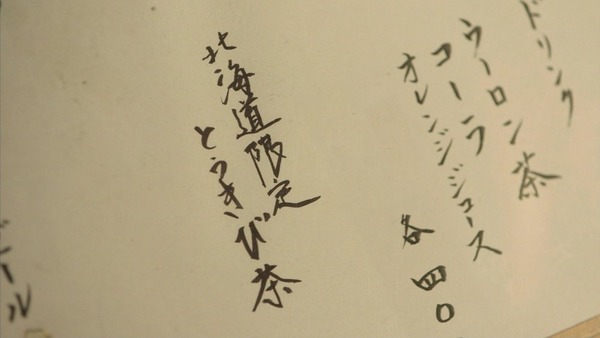 ドリンク
ウーロン茶
コーラ
オレンジジュース
各四〇
北海道限定
とうきび茶
ビール